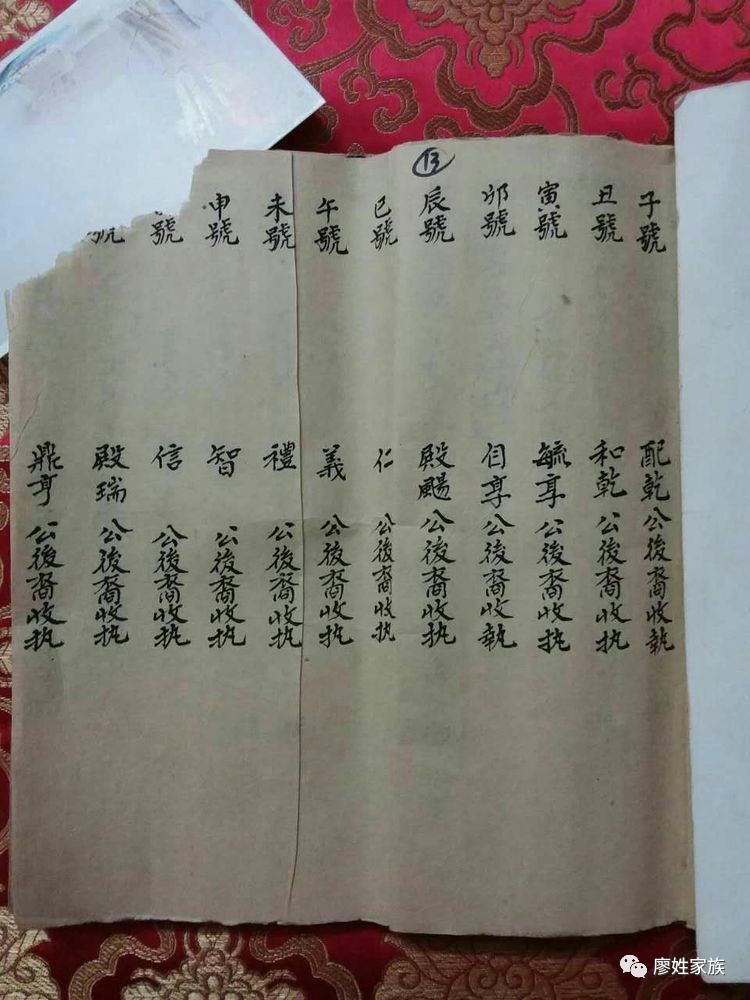 13
子號 配乾公後裔收執
丑號 和乾公後裔收执
寅號 毓亨公後裔收执
卯號 亨公後裔收執
辰號 殿颺公後裔收执
巳號 仁公後裔收执
午號 義公後裔收执
未號 禮公後裔收执
申號 智公後裔收执
號 信公後裔收执
號 殿瑞公後裔收执
鼎亨公後裔收执
廖姓家族